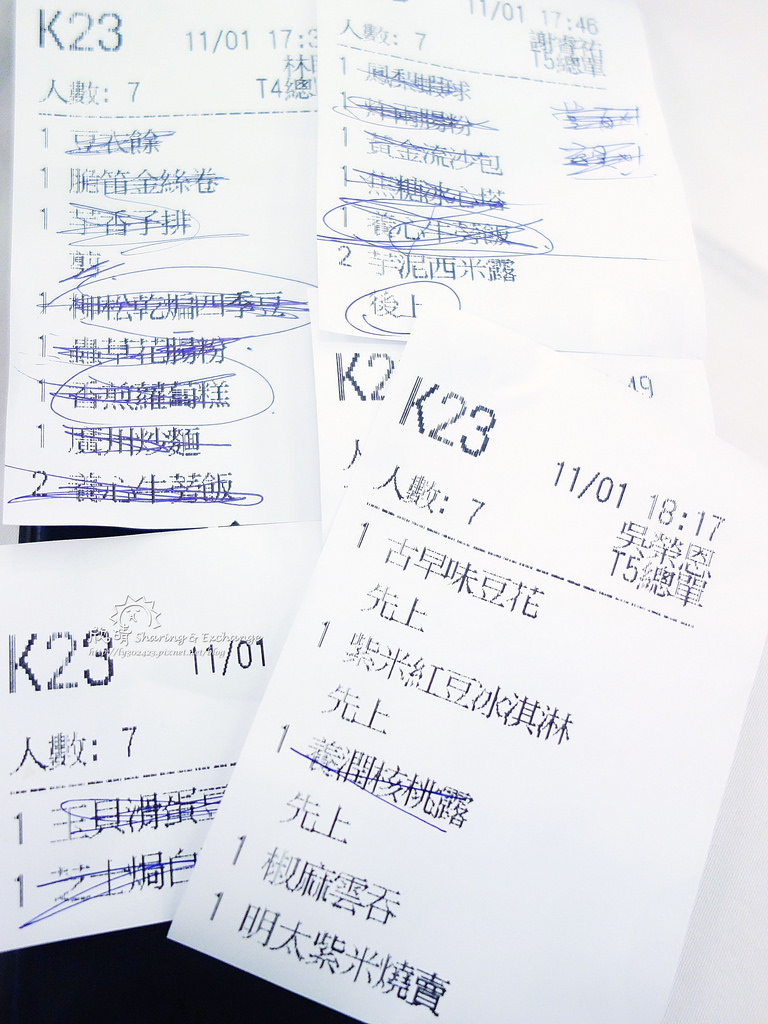 K23
11/01 17:3
林
人數: 7
T4總
1 豆衣餘
1 脆笛金絲卷
1 芋香子排
剪
1 柳松乾煸四季豆
1 蟲草花腸粉
1 香煎蘿蔔糕
1 廣州炒麵
2 養心牛蒡飯
11/01 17:46
謝睿祐
人數: 7
T5總單
1 鳳梨蝦球
1 炸兩腸粉
1 黃金流沙包
1 焦糖冰心塔
1 養心牛蒡飯
2 芋泥西米露
後上
K2
49
K23
11/01 18:17
吳榮恩
人數: 7
T5總單
1 古早味豆花
先上
1 紫米紅豆冰淇淋
先上
1 養潤核桃露
先上
1 椒麻雲吞
1 明太紫米燒賣
欣晴 Sharing & Exchange
http://ly302423.pixnet.net/blog
K23
11/01
人數: 7
1 玉貝滑蛋
1 芝士焗白